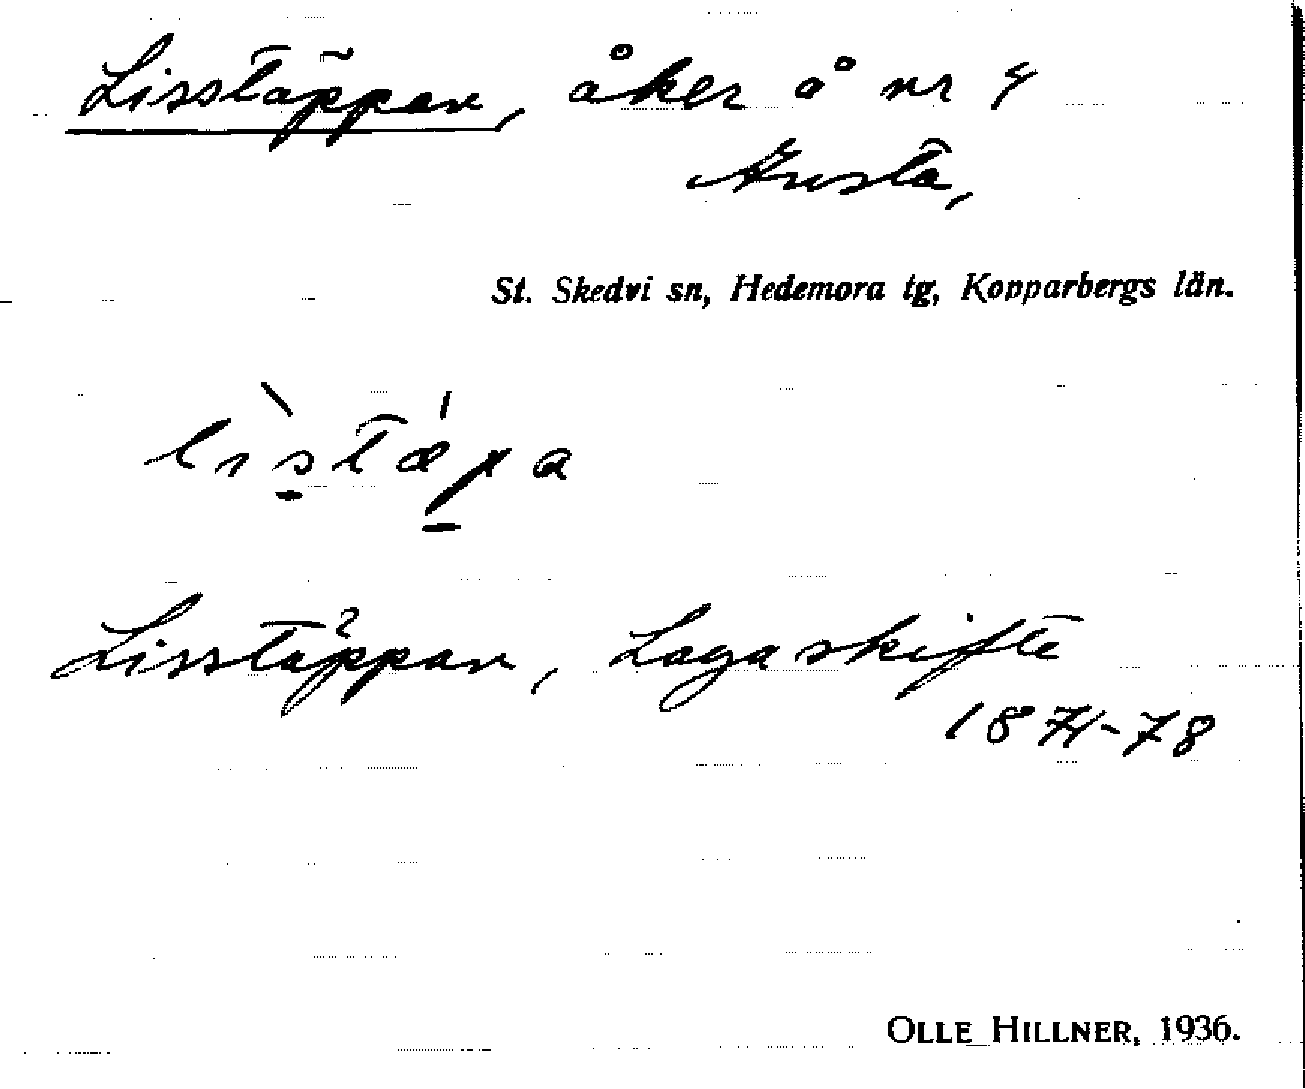 Lisstäppan, åker å nr 4
Knusta,
St. Skedvi sn, Hedemora tg, Kopparbergs län.
lìstǽpa
Lisstäppan, Laga skifte
1874-78
OLLE HILLNER, 1936.